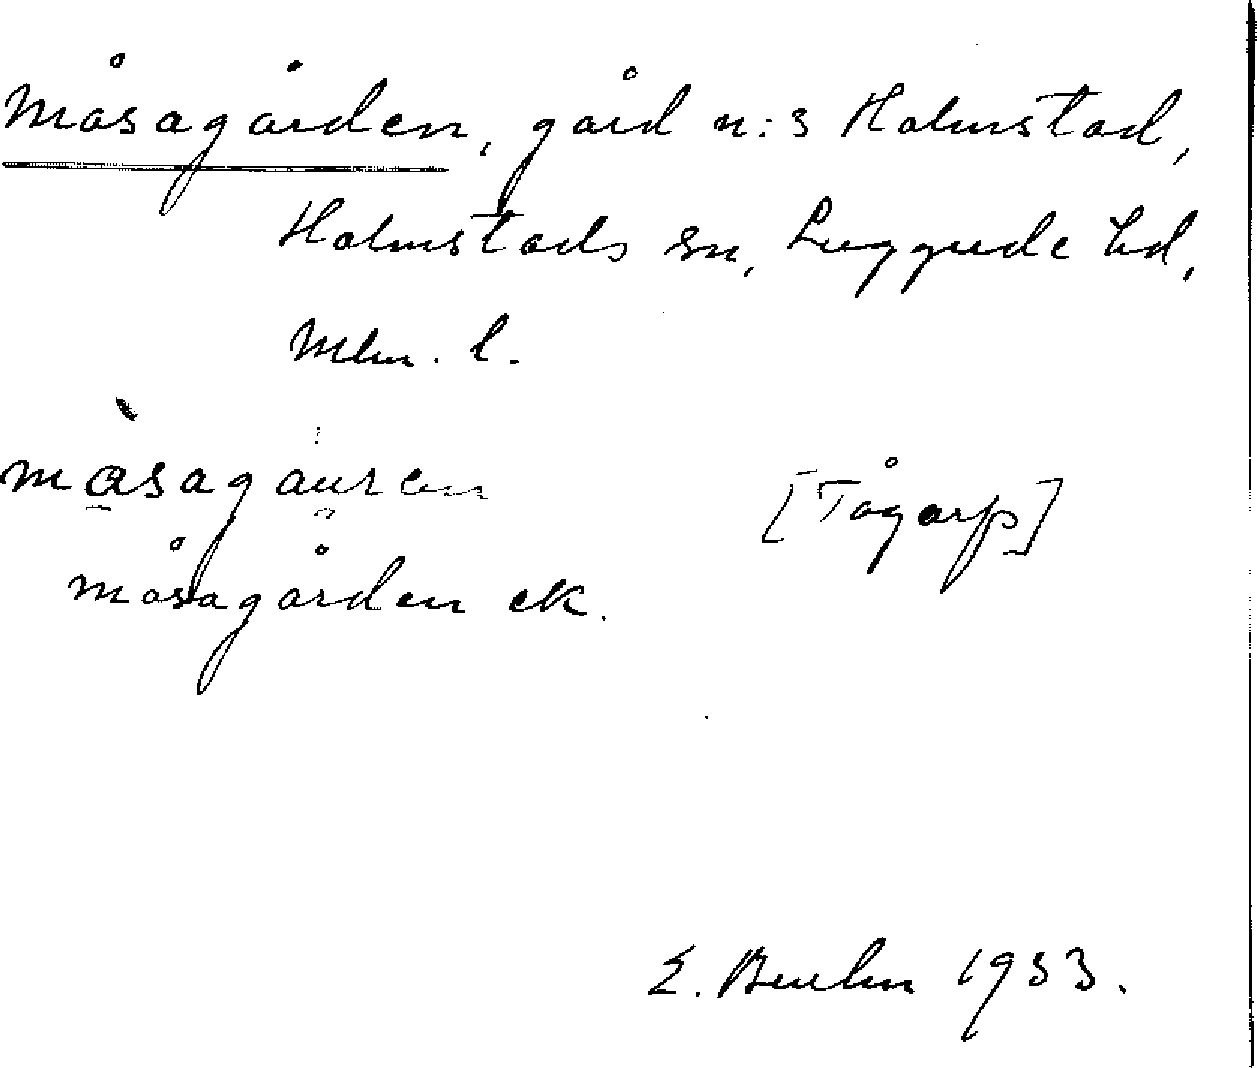 Måsagården, gård n:3 Halmstad,
Halmstads sn, Luggude hd,
Mlm. l.
måsagauren [Tågarp]
måsagården ek.
E. 1933.